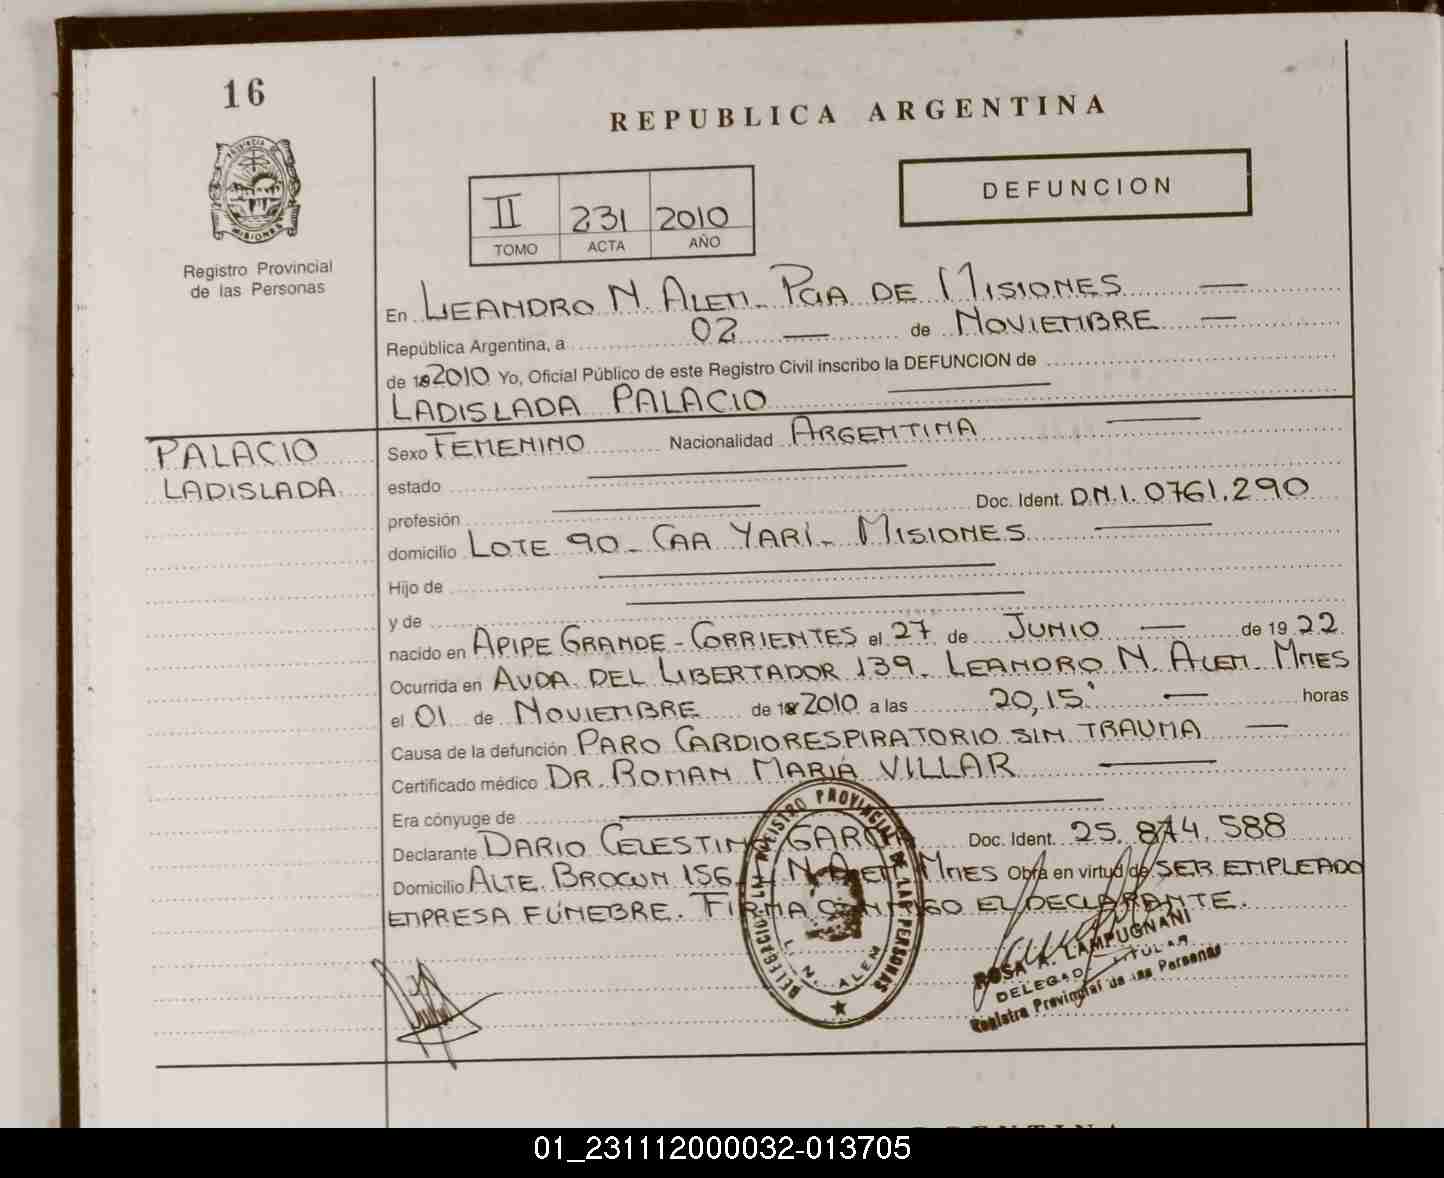 16
REPUBLICA ARGENTINA
PROVINCIA DE
MISIONES
Registro Provincial
de las Personas
II 231 2010
TOMO ACTA AÑO
DEFUNCION
En LEANDRO N. ALEM - PCIA DE MISIONES
República Argentina, a 02 de NOVIEMBRE
de 2010 Yo, Oficial Público de este Registro Civil inscribo la DEFUNCION de
LADISLADA PALACIO
PALACIO
LADISLADA
Sexo FEMENINO Nacionalidad ARGENTINA
estado
profesión Doc. Ident. D.N.I. 0761.290
domicilio LOTE 90 - CAA YARI - MISIONES
Hijo de
y de
nacido en APIPE GRANDE - CORRIENTES el 27 de JUNIO de 19 22
Ocurrida en AVDA. DEL LIBERTADOR 139 - LEANDRO N. ALEM - MNES
el 01 de NOVIEMBRE de 2010 a las 20,15' horas
Causa de la defunción PARO CARDIORESPIRATORIO SIN TRAUMA
Certificado médico DR. ROMAN MARIA VILLAR
Era cónyuge de
Declarante DARIO CELESTINO GARCIA Doc. Ident. 25.874.588
Domicilio ALTE. BROWN 156 - L. N. ALEM - MNES Obra en virtud de SER EMPLEADO
EMPRESA FÚNEBRE. FIRMA CONMIGO EL DECLARANTE.
REGISTRO PROVINCIAL DE LAS PERSONAS
L. N. ALEM
ROSA A. LAMPUGNANI
DELEGADO TITULAR
Registro Provincial de las Personas
01_231112000032-013705